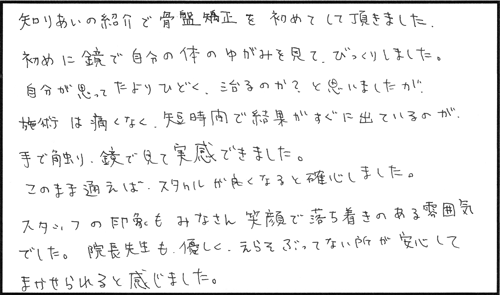 知りあいの紹介で骨盤矯正を初めてして頂きました.
初めに鏡で自分の体のゆがみを見て、びっくりしました。
自分が思ってたよりひどく、治るのか？と思いましたが、
施術は痛くなく、短時間で結果がすぐに出ているのが、
手で触り、鏡で見て実感できました。
このまま通えば、スタイルが良くなると確心しました。
スタッフの印象もみなさん笑顔で落ち着きのある雰囲気
でした。院長先生も、優しく、えらそぶってない所が安心して
まけせられると感じました。